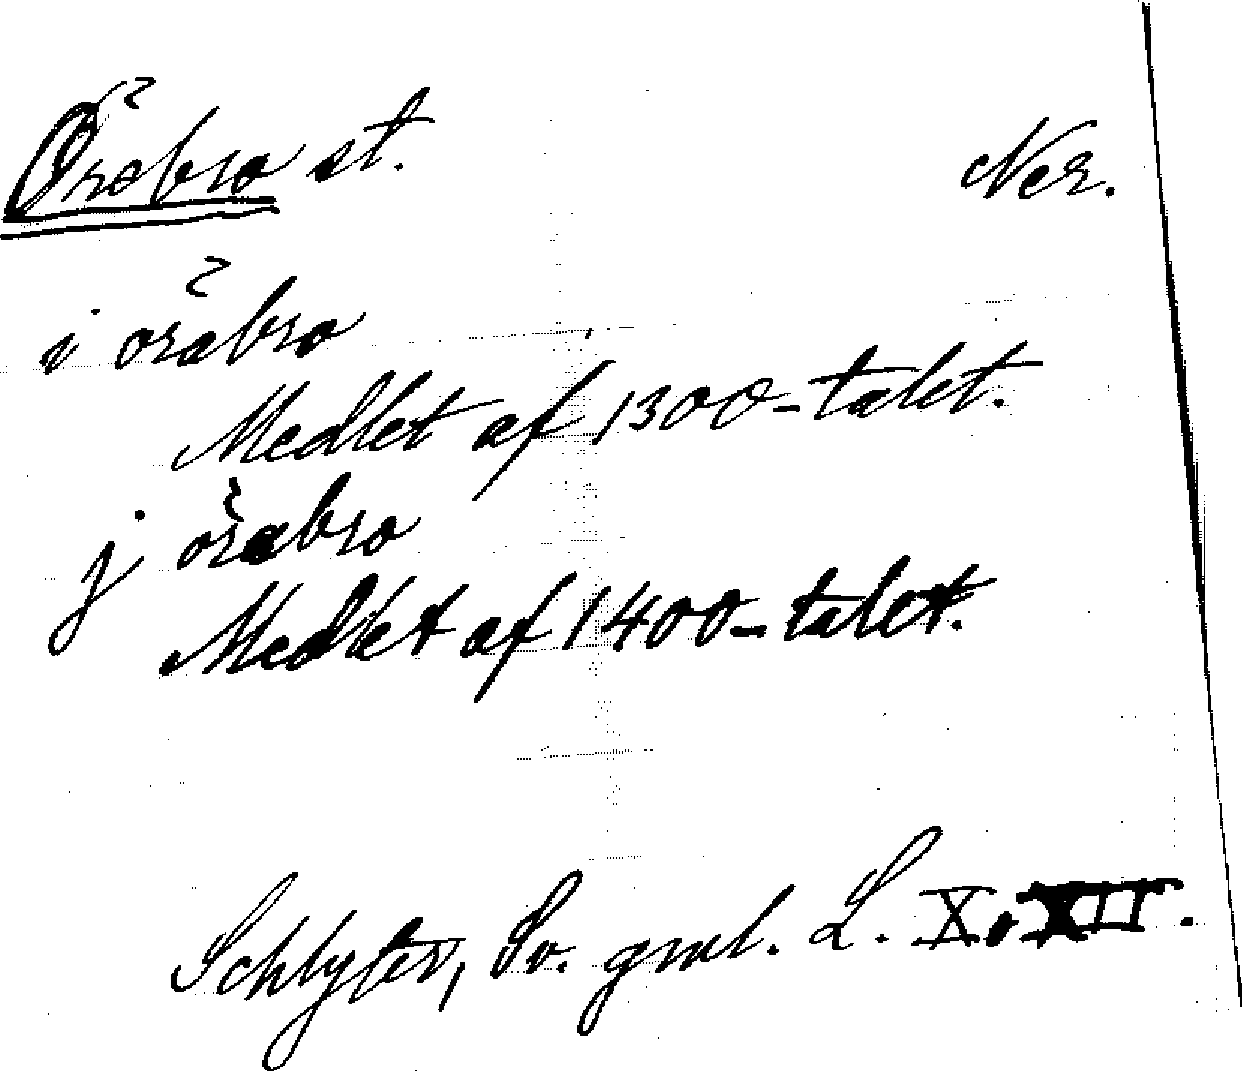 Örebro st. Ner.
i örebro
Medlet af 1300-talet.
j örebro
Medlet af 1400-talet.
Schlyter, Sv. gml. L. X, XII.